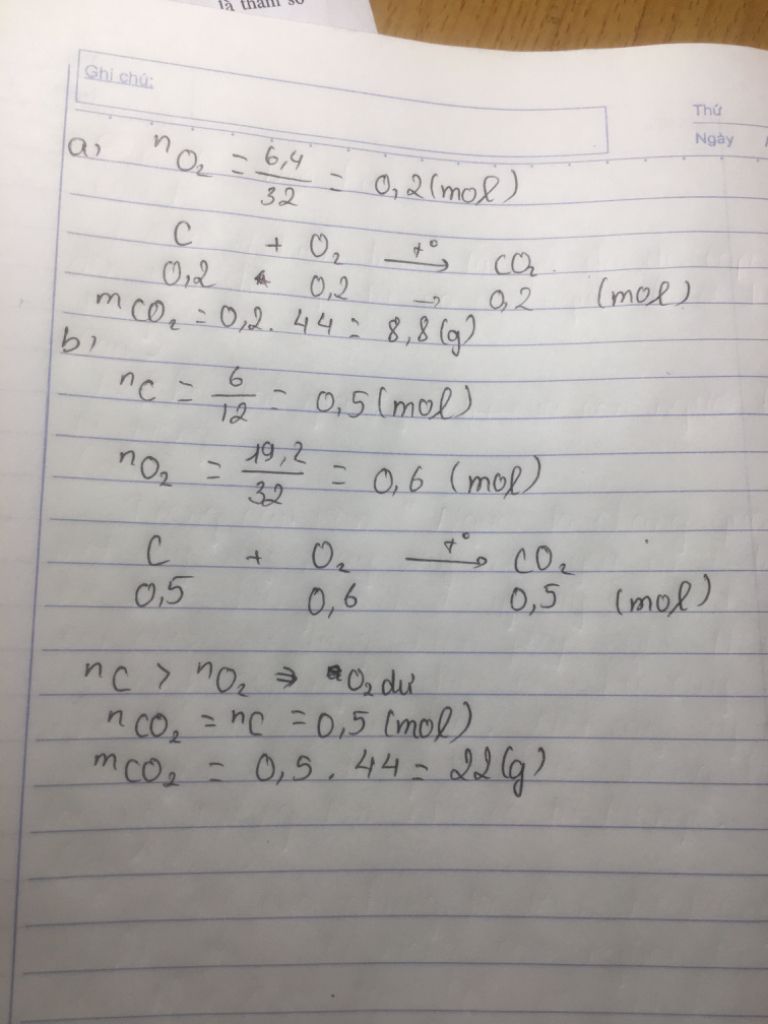 là tham số
Ghi chú:
Thứ
Ngày
a, nO₂ = 6,4/32 = 0,2 (mol)
C + O₂ t°→ CO₂
0,2 ← 0,2 → 0,2 (mol)
mCO₂ = 0,2 . 44 = 8,8 (g)
b,
nC = 6/12 = 0,5 (mol)
nO₂ = 19,2/32 = 0,6 (mol)
C + O₂ t°→ CO₂
0,5 0,6 0,5 (mol)
nC > nO₂ ⇒ O₂ dư
nCO₂ = nC = 0,5 (mol)
mCO₂ = 0,5 . 44 = 22 (g)